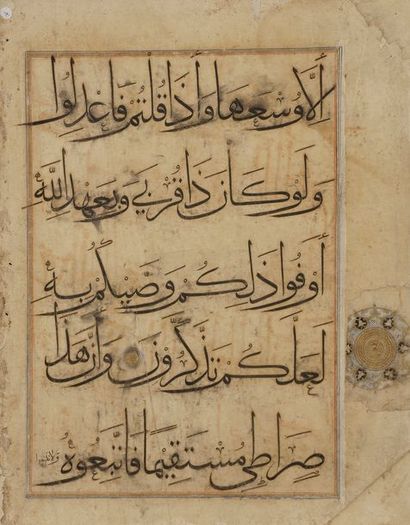 إلا وسعها وإذا قلتم فاعدلوا
ولو كان ذا قربى وبعهد الله
أوفوا ذلكم وصيكم به
لعلكم تذكرون وأن هذا
صراطي مستقيما فاتبعوه
ولا تتبعوا